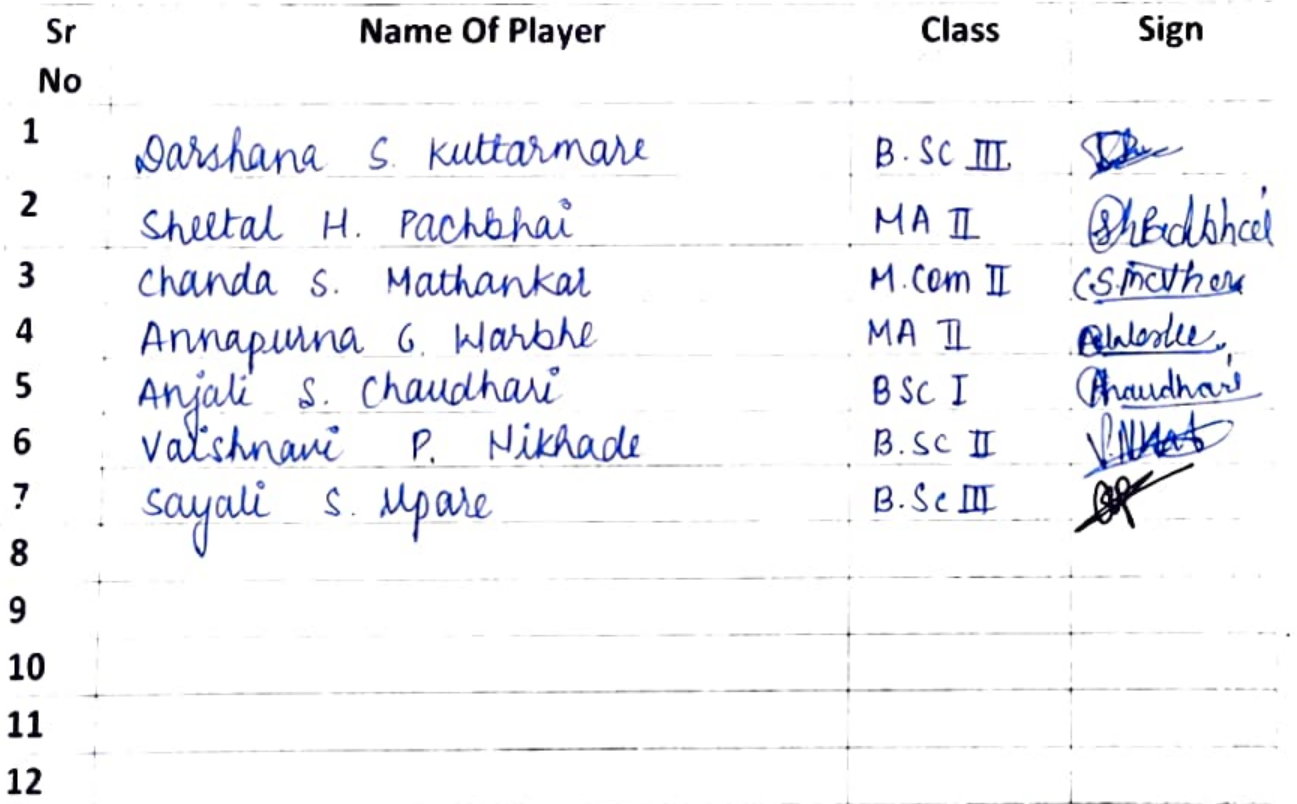 Sr No Name Of Player Class Sign
1 Darshana S. Kuttarmare B.Sc III
2 Sheetal H. Pachbhai MA II
3 Chanda S. Mathankar M.Com II
4 Annapurna G. Warbhe MA II
5 Anjali S. Chaudhari BSc I Chaudhari
6 Vaishnavi P. Nikhade B.Sc II
7 Sayali S. Upare B.Sc III
8
9
10
11
12